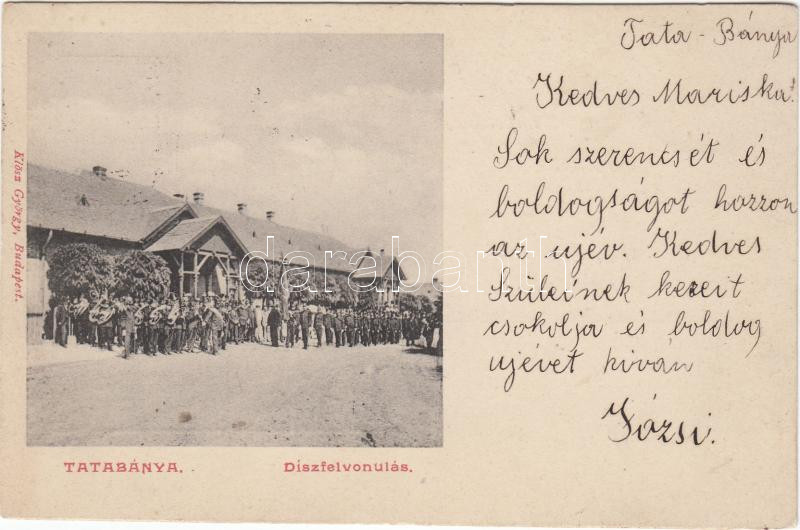 Tata - Bánya
Kedves Mariska!
Sok szerencsét és
boldogságot hozzon
az ujév. Kedves
Szüleinek kezeit
csokolja és boldog
ujévet kiván
Józsi.
Klösz György, Budapest.
darabanth
TATABÁNYA. Díszfelvonulás.